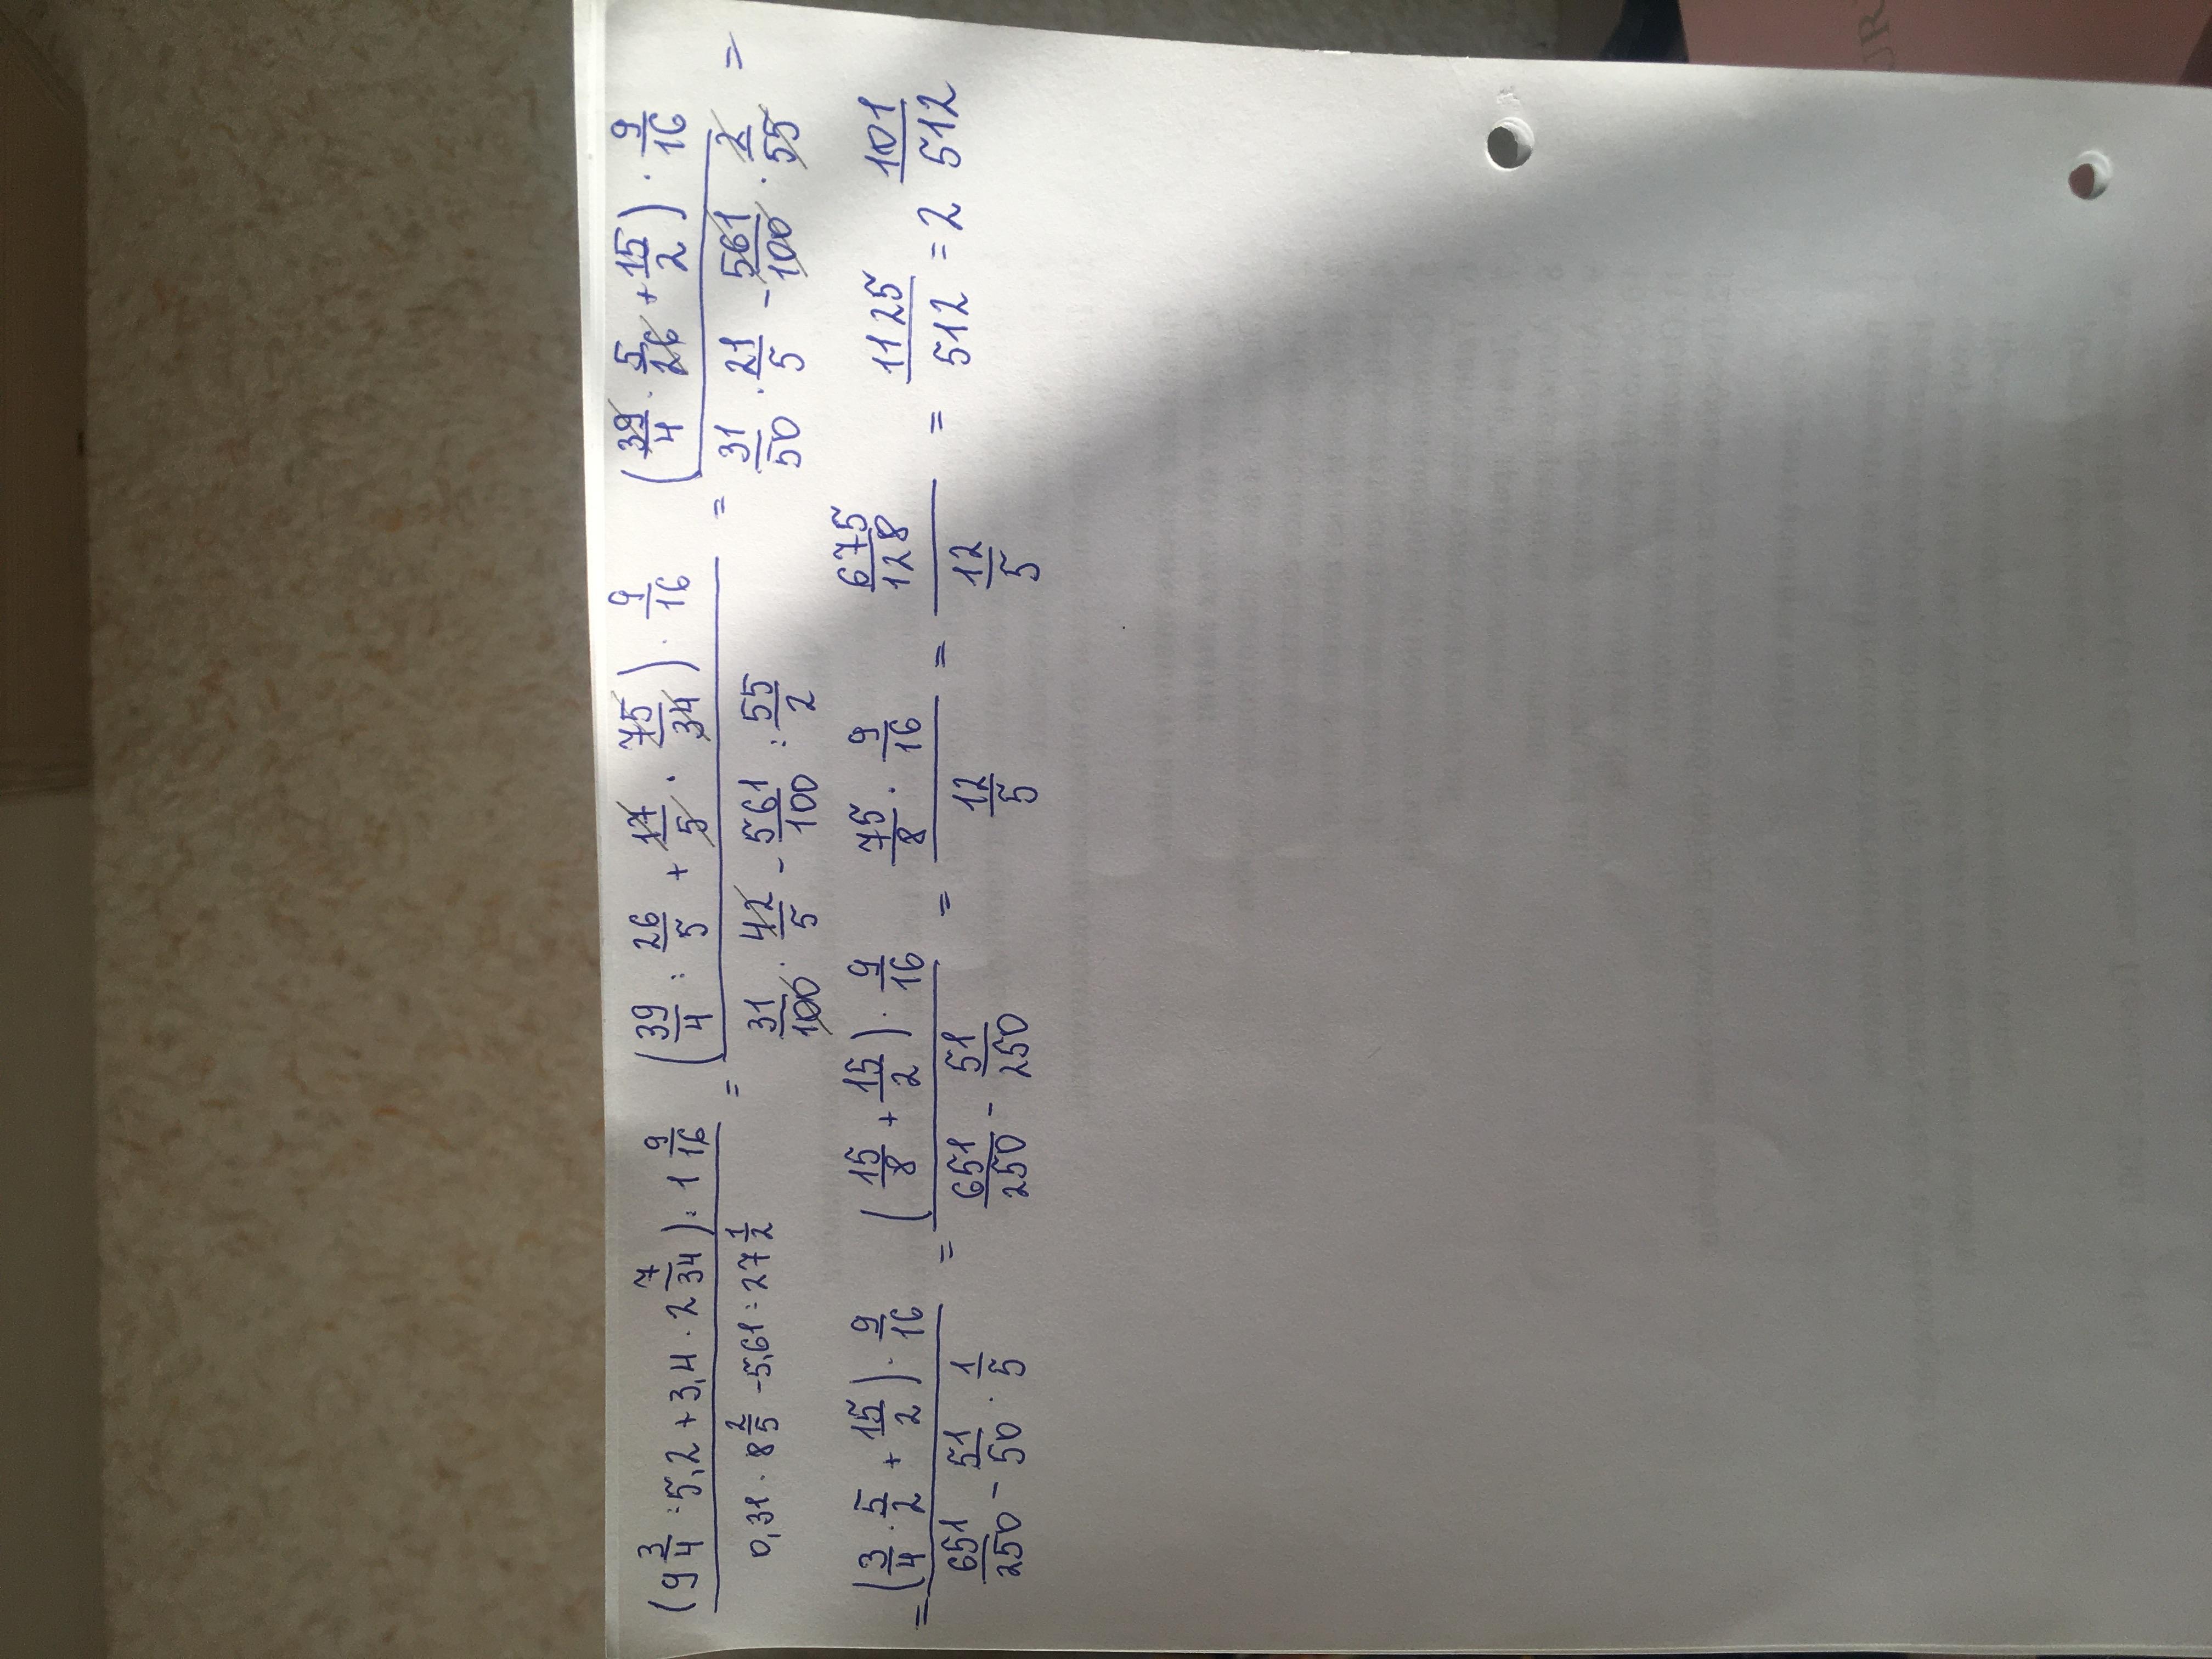 (9 3/4 : 5,2 + 3,4 · 2 7/34) : 1 9/16 / 0,31 · 8 2/5 - 5,61 : 27 1/2 = (39/4 : 26/5 + 17/5 · 75/34) · 9/16 / 31/100 · 42/5 - 561/100 : 55/2 = (39/4 · 5/26 + 15/2) · 9/16 / 31/50 · 21/5 - 561/100 · 2/55 =
= (3/4 · 5/2 + 15/2) · 9/16 / 651/250 - 51/50 · 1/5 = (15/8 + 15/2) · 9/16 / 651/250 - 51/250 = 75/8 · 9/16 / 12/5 = 675/128 / 12/5 = 1125/512 = 2 101/512